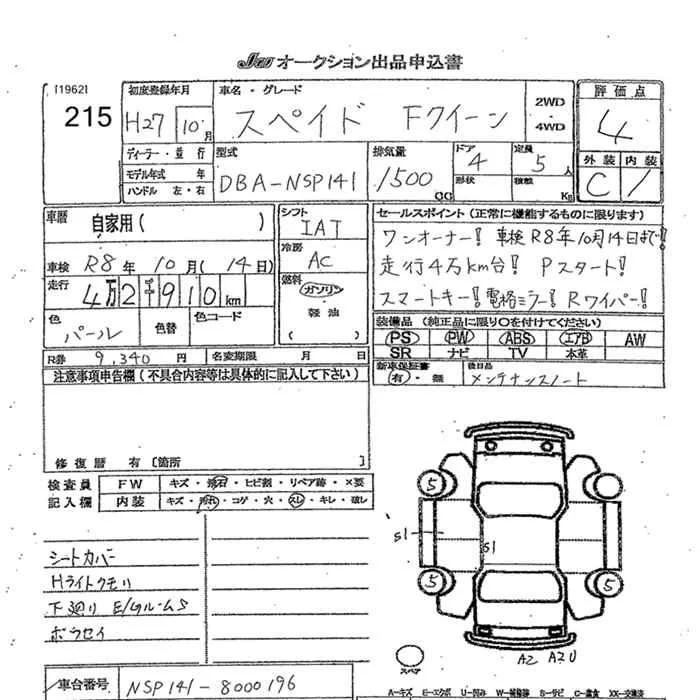 JU オークション出品申込書
[1962]
215
初度登録年月 車名・グレード 評価点
H27 10月 スペイド Fクイーン 2WD 4WD 4
ディーラー・並行 型式 排気量 ドア 定員 外装 内装
モデル年式 年 DBA-NSP141 1500cc 4 5人 C 1
ハンドル 左・右 形状 積載 Kg
車歴 自家用( ) シフト IAT セールスポイント(正常に機能するものに限ります)
ワンオーナー! 車検R8年10月14日まで!
車検 R8年 10月(14日) 冷房 AC 走行4万km台! Pスタート!
走行 4万2千910km 燃料 ガソリン スマートキー! 電格ミラー! Rワイパー!
色 パール 色替 色コード 軽油 ( )
装備品(純正品に限り○を付けてください)
PS PW ABS エアB AW
R券 9,340円 名変期限 月 日 SR ナビ TV 本革
注意事項申告欄(不具合内容等は具体的に記入して下さい) 新車保証書 有・無 後日品 メンテナンスノート
修復歴 有[箇所 ]
検査員 FW キズ・飛石・ヒビ割・リペア跡・×要
記入欄 内装 キズ・汚れ・コゲ・穴・スレ・キレ・破レ
シートカバー
Hライトクモリ
下廻り E/Gルーム S
ボラセイ
5
5
5
S1
S1
スペア
A2 A2 U
車台番号 NSP141-8000196
A-キズ E-エクボ U-凹み W-補修跡 S-サビ C-腐食 XX-交換済